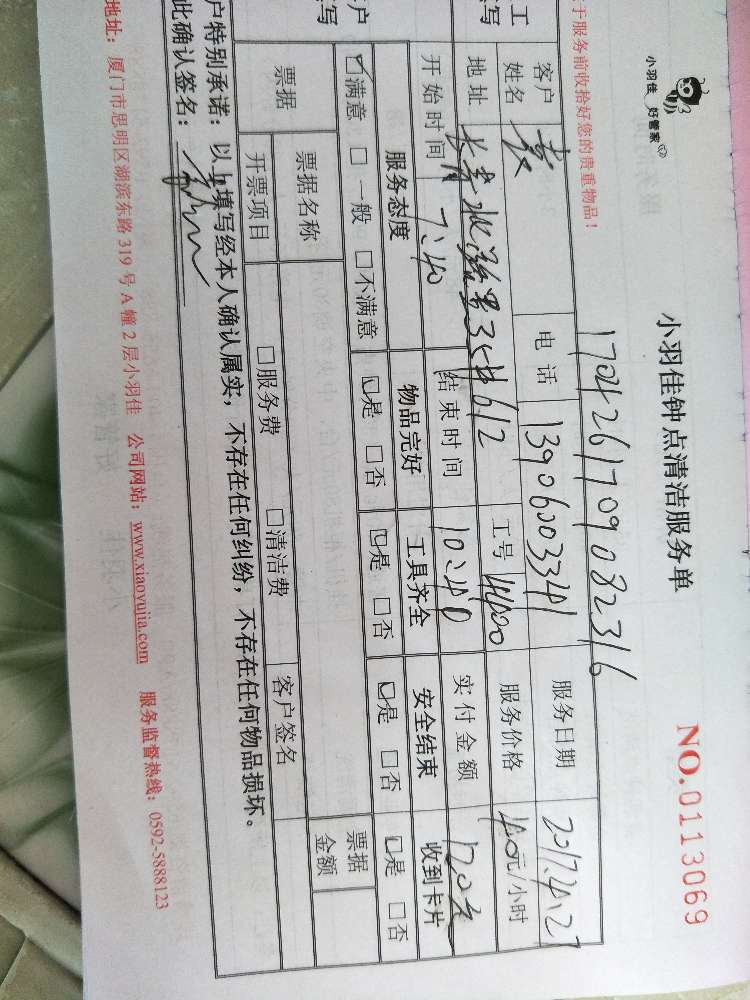 小羽佳 好管家
小羽佳钟点清洁服务单
NO.0113069
于服务前收拾好您的贵重物品！
1704261709082316
工
写
客户姓名 电话 13906003341 服务日期 2017.4.27
地址 612 工号 服务价格 40元/小时
开始时间 7:40 结束时间 10:40 实付金额 120元
户
写
服务态度 物品完好 工具齐全 安全结束 收到卡片
☑满意 □一般 □不满意 ☑是 □否 ☑是 □否 ☑是 □否 ☑是 □否
票据 票据名称 票据金额
开票项目 □服务费 □清洁费 客户签名
户特别承诺：以上填写经本人确认属实，不存在任何纠纷，不存在任何物品损坏。
此确认签名：
地址：厦门市思明区湖滨东路319号A幢2层小羽佳 公司网站：www.xiaoyujia.com 服务监督热线：0592-5888123